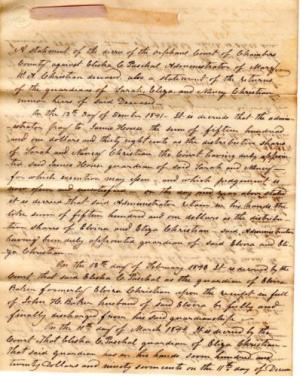 A statement of the decree of the orphans Court of Chambers
County against Elisha C. Paschal Administrator of
W. A. Christian deceased also a statement of the returns
of the guardians of Sarah, Eliza, and Nancy Christian
minor heirs of said Deceased
On the 13th Day of 1841. It is decreed that the admin
istrator pay to James House the sum of fifteen hundred
and one dollars and thirty eight cents as the distribution share
of Sarah and Nancy Christian the Court having duly appoin
ted said James House guardian of said Sarah and Nancy
for which execution may issue and which judgement is
it is decreed that said Administrator retain in his hands the
sum of fifteen hundred and one dollars as the distribu
tion shares of Elvora and Eliza Christian said Administrator
having been duly appointed guardian of said Elvora and Eli
za Christian
On the 13th day of February 1843 It is decreed by the
Court that said Elisha C. Paschal the guardian of Elvora
Baker formerly Elvora Christian upon the receipt in full
of John H. Baker husband of said Elvora be fully and
finally discharged from his said guardianship
On the 11th day of March 1844 It is decreed by the
Court that Elisha C. Paschal guardian of Eliza Christian
that said guardian has in his hands seven hundred and
twenty Dollars and ninety seven cents on the 11th day of